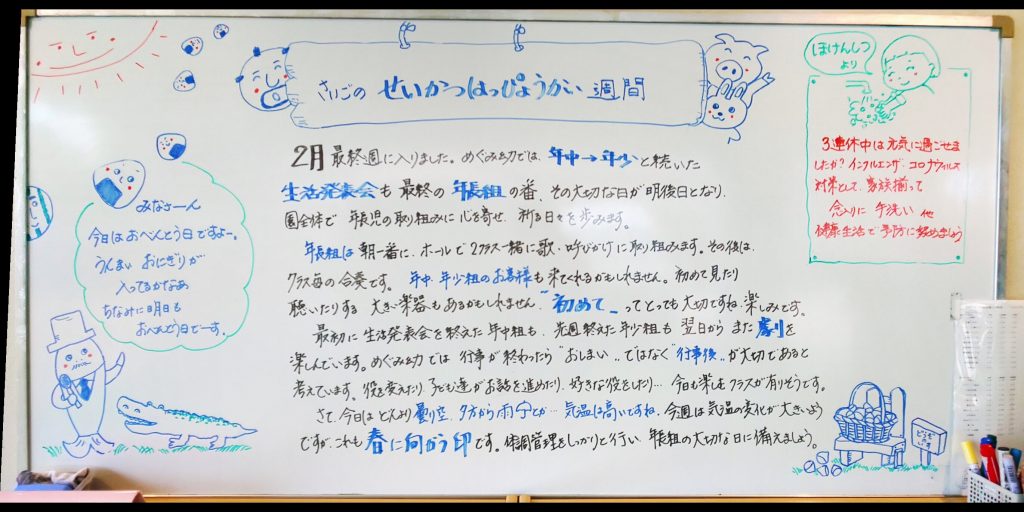 さいごの せいかつはっぴょうかい 週間
2月 最終週に入りました。めぐみ幼では、年中→年少と続いた
生活発表会も 最終の 年長組の番、その大切な日が明後日となり、
園全体で 年長児の取り組みに心を寄せ、祈る日々を歩みます。
年長組は 朝一番に、ホールで2クラス一緒に歌・呼びかけに取り組みます。その後は、
クラス毎の合奏です。 年中、年少組のお客様も来てくれるかもしれません。初めて見たり
聴いたりする 大きい楽器もあるかもしれません “初めて„ ってとっても大切ですね・楽しみです。
最初に 生活発表会を終えた年中組も、先週終えた年少組も 翌日から また 劇を
楽しんでいます。めぐみ幼では 行事が終わったら“おしまい„ではなく“行事後„が大切であると
考えています。役を変えたり、子ども達がお話を進めたり、好きな役をしたり… 今日も楽しむクラスが有りそうです。
さて、今日はどんより曇り空、夕方から雨予とか… 気温は高いですね、今週は気温の変化が大きいよう
ですが、これも 春に向かう印です。体調管理をしっかりと行い、年長組の大切な日に備えましょう。
みなさーん
今日はおべんとう日ですよー。
うんまい おにぎりが
入ってるかなぁ
ちなみに明日も
おべんとう日でーす。
ほけんしつ
より
3連休中は元気に過ごせま
したか?インフルエンザ・コロナウィルス
対策として、家族揃って
念入りに 手洗い 他
健康生活で予防に努めましょう